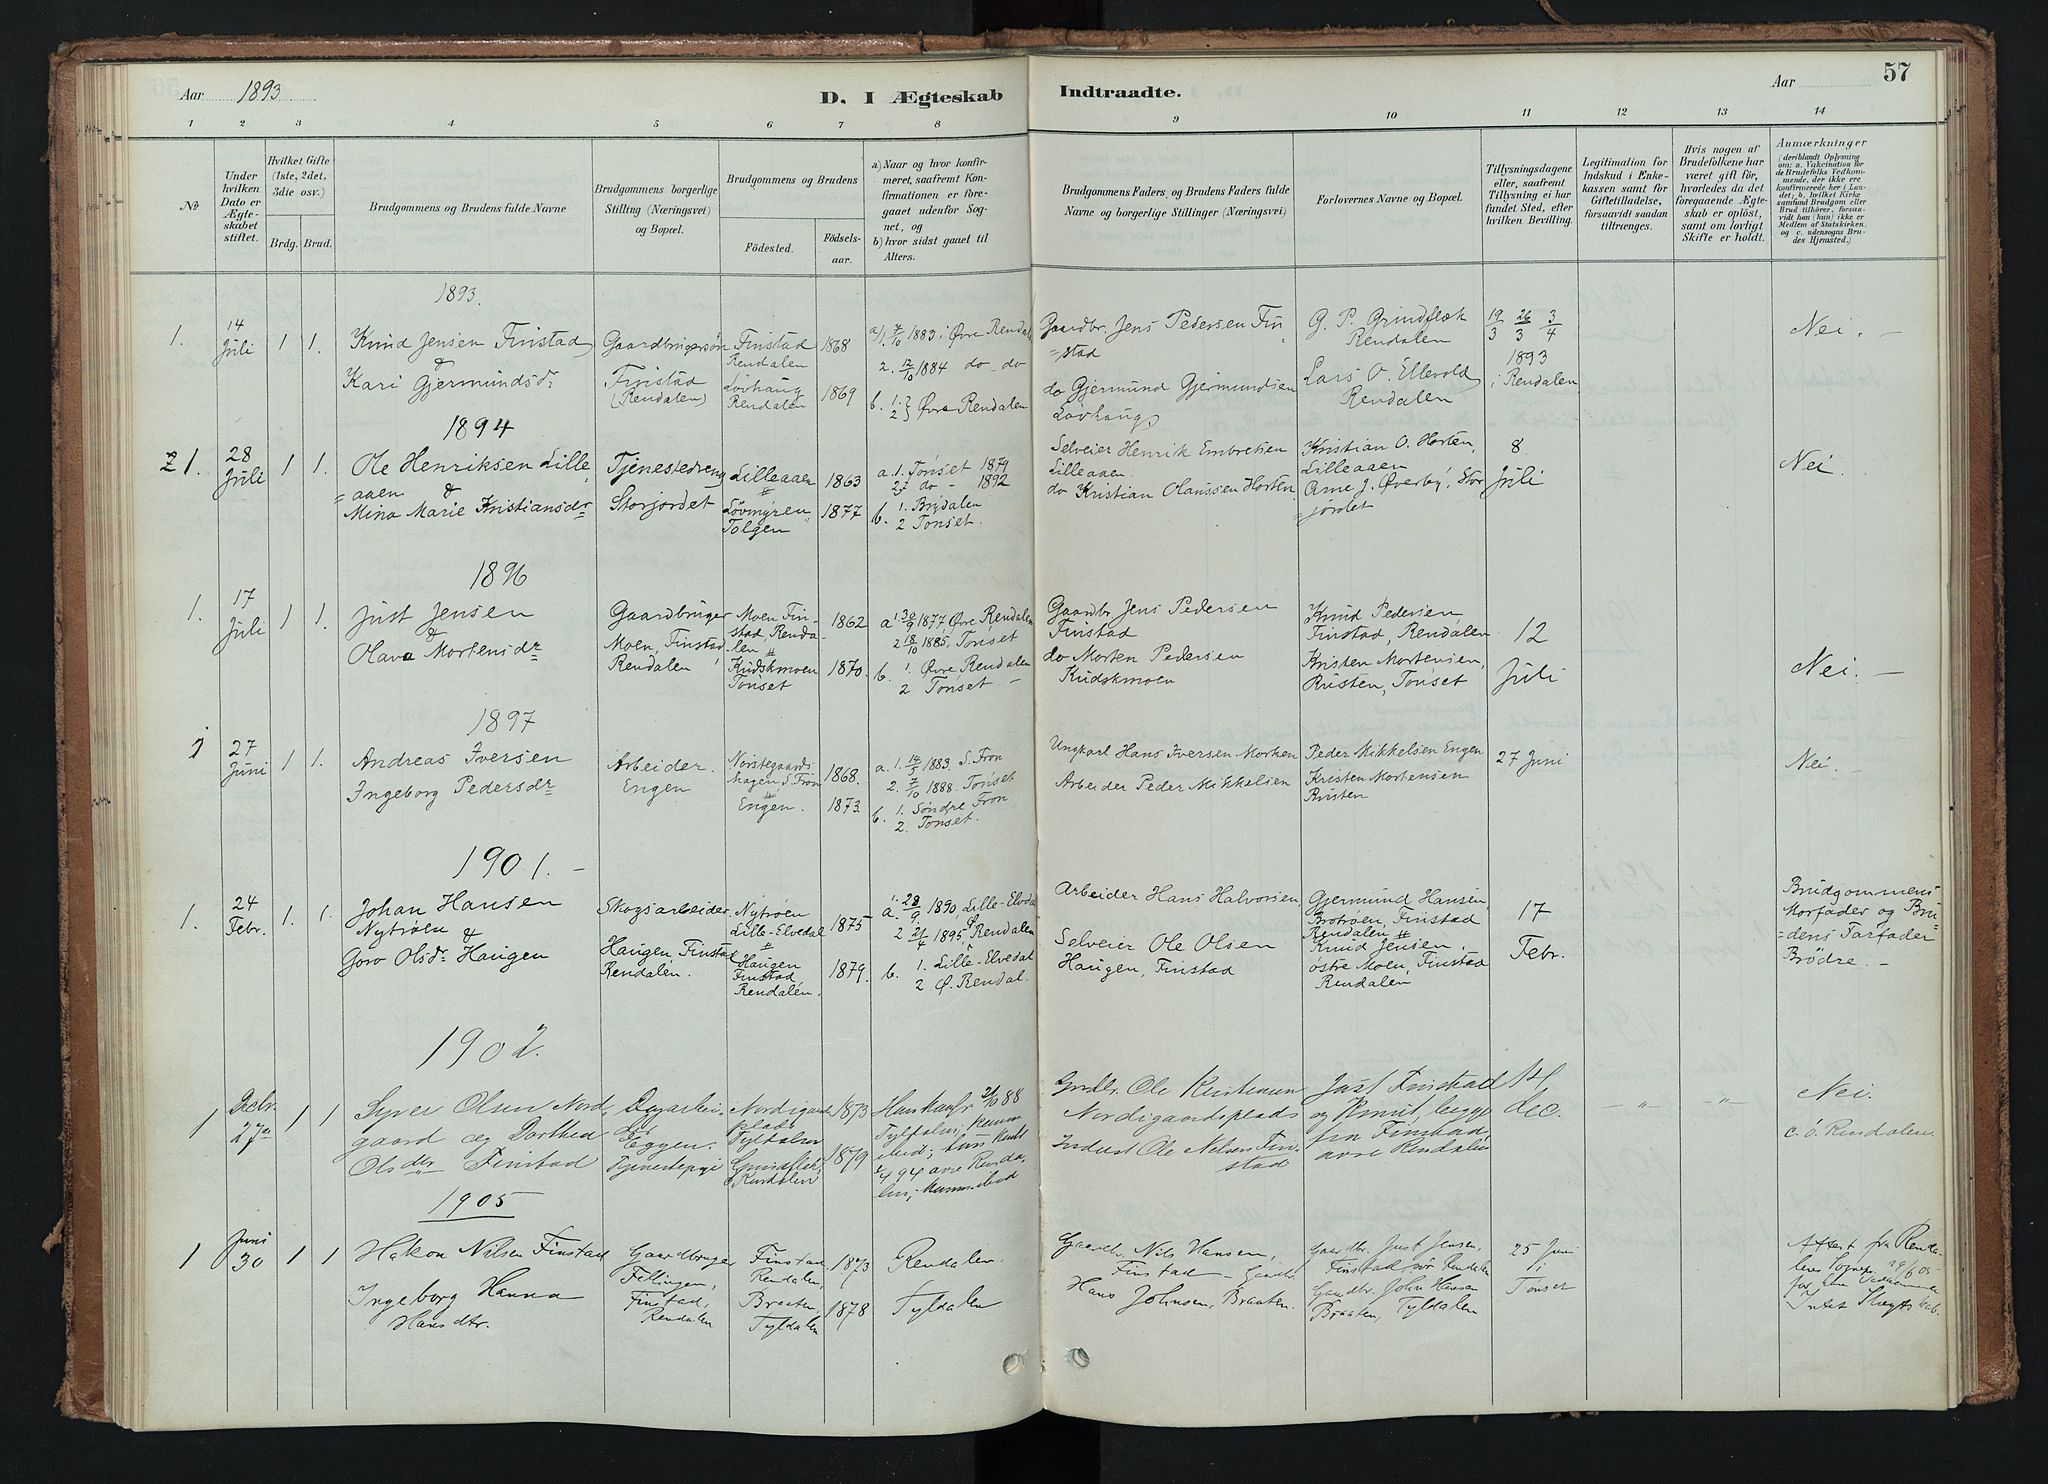 Aar 1893
D. I Ægteskab
Indtraadte.
Aar
57
1 2 3 4 5 6 7 8 9 10 11 12 13 14
No
Under hvilken Dato er Ægteskabet stiftet.
Hvilket Gifte (1ste, 2det, 3die osv.)
Brdg. Brud.
Brudgommens og Brudens fulde Navne
Brudgommens borgerlige Stilling (Næringsvei) og Bopæl.
Brudgommens og Brudens
Födested.
Födselsaar.
a) Naar og hvor konfirmeret, saafremt Konfirmationen er foregaaet udenfor Sognet, og
b) hvor sidst gaaet til Alters.
Brudgommens Faders, og Brudens Faders fulde Navne og borgerlige Stillinger (Næringsvei)
Forlovernes Navne og Bopæl.
Tillysningsdagene eller, saafremt Tillysning ei har fundet Sted, efter hvilken Bevilling.
Legitimation for Indskud i Enkekassen samt for Giftetilladelse, forsaavidt saadan tiltrænges.
Hvis nogen af Brudefolkene har været gift før, hvorledes da det foregaaende Ægteskab er oplöst, samt om lovligt Skifte er holdt.
Anmærkninger (deriblandt Oplysning om: a. Vakcination for de Brudefolks Vedkommende, der ikke ere konfirmerede her i Landet, b. hvilket Kirkesamfund Brudgom eller Brud tilhörer, forsaavidt han (hun) ikke er Medlem af Statskirken, og c. udensogns Brudes Hjemsted.)
1893.
1. 14 Juli 1 1.
Knud Jensen Finstad
&
Kari Gjermundsdr
Gaardbrugersön
Finstad
(Rendalen)
Finstad
Rendalen
Lövhaug
Rendalen
1868
1869
a/1. 7/10 1883 i Øvre Rendalen
2. 12/10 1884 do do
b. 1. 2 } Øvre Rendalen
Gaardbr. Jens Pedersen Fin
=stad
do Gjermund Gjermundsen
Lövhaug
G. P. Grindflæk
Rendalen
Lars O. Ellevold
Rendalen
19/3 26/3 3/4
1893
i Rendalen
Nei. -
1894
1. 28 Juli 1 1.
Ole Henriksen Lille
=aaen &
Mina Marie Kristiansdr
Tjenestedreng
Storjordet
Lilleaaen
Lövmyren
Tolgen
1863
1877
a. 1. Tonset 1879
2. do - 1892
b. 1. Brydalen
2 Tonset.
Selveier Henrik Embretsen
Lilleaaen.
do Kristian Olaussen Horten
Kristian O. Horten,
Lilleaaen
Arne J. Øverby, Stor
=jördet
8
Juli
Nei.
1896
1. 17 Juli 1 1.
Just Jensen
&
Olava Mortensdr
Gaardbruger
Moen, Finstad
Rendalen
Moen Fin-
stad, Renda-
len
Kudskmoen
Tonset
1862
1870.
a 1. 30/9 1877 Øvre Rendalen
2 18/10 1885, Tonset
b. 1. Øvre Rendalen
2 Tonset -
Gaardbr Jens Pedersen
Finstad
do Morten Pedersen
Kudskmoen
Knud Pedersen
Finstad, Rendalen
Kristen Mortensen,
Rusten, Tonset
12
Juli
Nei. -
1897
1 27 Juni 1 1.
Andreas Iversen
Ingeborg Pedersdr
Arbeider.
Engen
Norstegaards
hagen, S. Fron
Engen.
1868.
1873.
a. 1. 14/5 1883. S. Fron
2. 7/10 1888. Tonset
b. 1. Søndre Fron
2. Tonset.
Ungkarl Hans Iversen Morken
Arbeider Peder Mikkelsen
Peder Mikkelsen Engen
Kristen Mortensen
Rusten
27 Juni
Nei. -
1901. -
1. 24 Febr. 1. 1.
Johan Hansen
Nytröen &
Goro Olsdr Haugen
Skogsarbeider.
Haugen, Finstad
Rendalen.
Nytröen
Lille-Elvedal
Haugen
Finstad
Rendalen.
1875
1879.
a. 1. 28/9. 1890, Lille-Elvdal
2 21/4 1895, Ø Rendalen
b. 1. Lille-Elvedal
2. Ø. Rendal.
Arbeider Hans Halvorsen,
Selveier Ole Olsen
Haugen, Finstad
Gjermund Hansen,
Brotröen, Finstad
Rendalen
Knud Jensen.
östre Moen, Finstad
Rendalen
17
Febr.
Brudgommens
Morfader og Bru
=dens Farfader
Brödre. -
1902.
1 Decbr. 27de 1 1
Syver Olsen Nord
gaard og Dorthea
Olsdtr Finstad
Eggen.
Tjenestepige
Nordigaards
plads
Tyldalen
Grindflek,
Ø Rendalen
1873
1879
Tyldalen;
Ole Kristiansen
Nordigaardsplads
Indust Ole Nelsen Fin-
stad
Just Finstad
og Knut, begge
fra Finstad,
øvre Rendalen
14,
dec.
- " -
- " -
Nei.
c. ö. Rendalen.
1905
1 Juni 30 1 1
Hakon Nilsen Finstad
Ingeborg Hanna
Hansdtr.
Gaardbruger
Fellingen,
Finstad,
Rendalen
Finstad
Rendalen,
Braaten,
Tyldalen
1873
1878
Rendalen.
Tyldalen
Gaardbr. Nils Hansen,
Finstad - Gaardbr.
Hans Johnsen, Braaten.
Gaardbr. Just Jensen,
Finstad, Rendalen
Gaardbr. John Hansen
Braaten, Tyldalen
25 Juni
i
Tonset
Attest fra Renda-
lens Sognepr. 29/6 05
Intet Slægtskab.